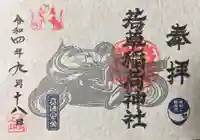 奉拝
若草稲荷神社
令和四年九月十八日